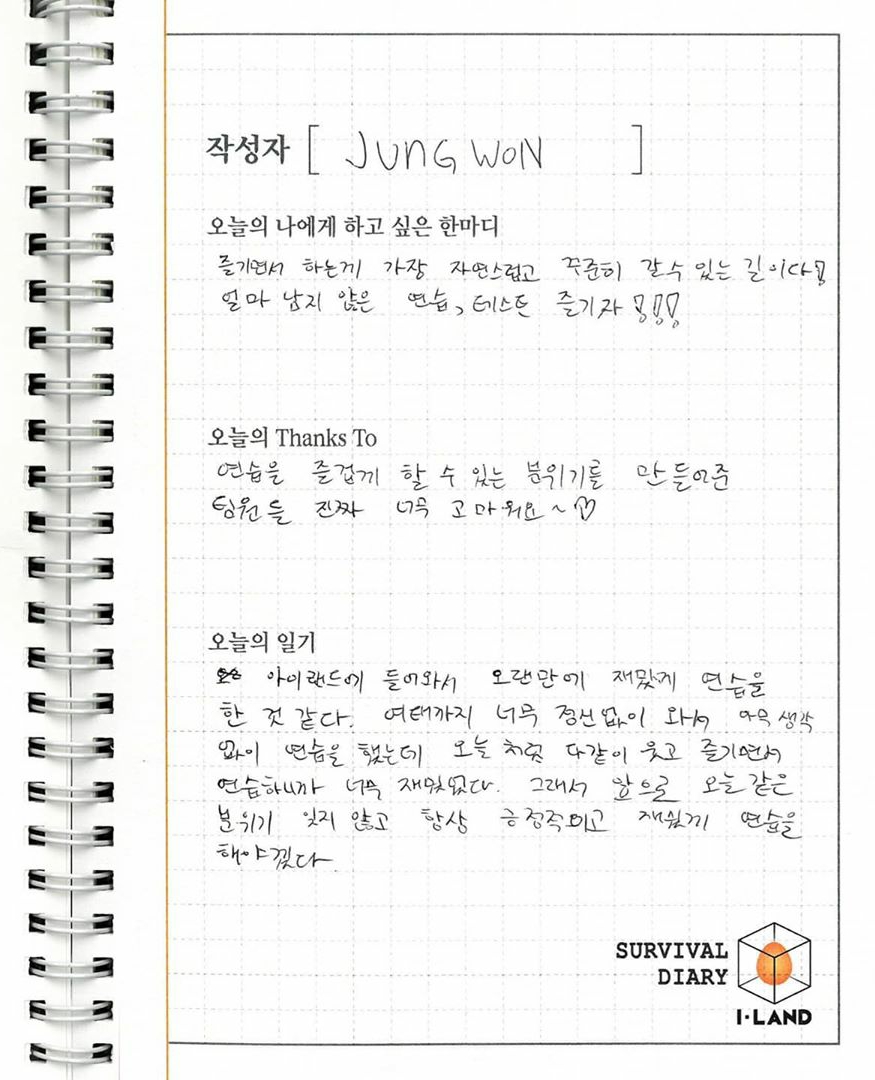 작성자 [ JUNGWON ]
오늘의 나에게 하고 싶은 한마디
즐기면서 하는게 가장 자연스럽고 꾸준히 갈 수 있는 길이다!
얼마 남지 않은 연습, 테스트 즐기자 !!!
오늘의 Thanks To
연습을 즐겁게 할 수 있는 분위기를 만들어준
팀원들 진짜 너무 고마워요~♡
오늘의 일기
아이랜드에 들어와서 오랜만에 재밌게 연습을
한 것 같다. 여태까지 너무 정신없이 와서 아무 생각
없이 연습을 했는데 오늘처럼 다같이 웃고 즐기면서
연습하니까 너무 재밌었다. 그래서 앞으로 오늘같은
분위기 잊지 않고 항상 긍정적이고 재밌게 연습을
해야겠다.
SURVIVAL
DIARY
I·LAND